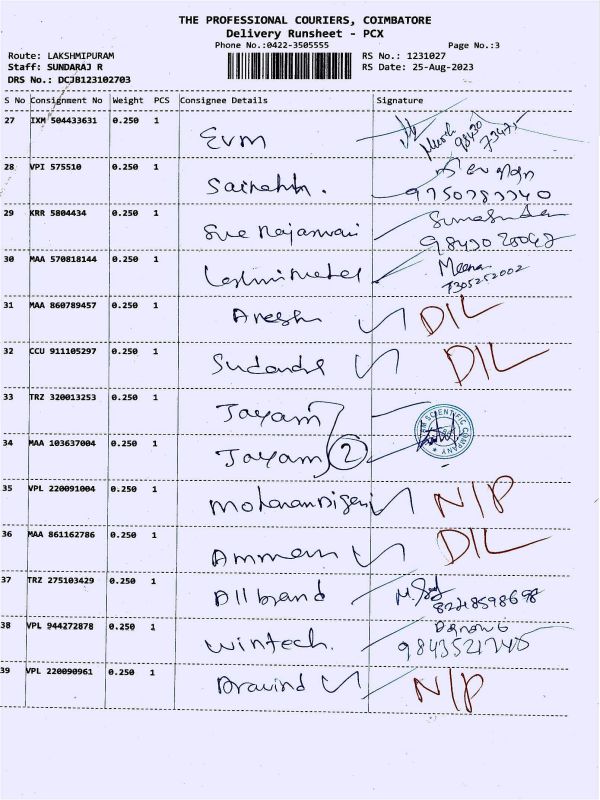 THE PROFESSIONAL COURIERS, COIMBATORE
Delivery Runsheet - PCX
Phone No.:0422-3505555
Page No.:3
Route: LAKSHMIPURAM
RS No.: 1231027
Staff: SUNDARAJ R
RS Date: 25-Aug-2023
DRS No.: DCJB123102703
S No Consignment No Weight PCS Consignee Details Signature
27 IXM 504433631 0.250 1 Evm
28 VPI 575510 0.250 1 9750783340
29 KRR 5804434 0.250 1
30 MAA 570818144 0.250 1 Meena
7305252002
31 MAA 860789457 0.250 1 DIL
32 CCU 911105297 0.250 1 DIL
33 TRZ 320013253 0.250 1 Jayam
34 MAA 103637004 0.250 1 Jayam 2
SCIENTIFIC COMPANY
35 VPL 220091004 0.250 1 N/P
36 MAA 861162786 0.250 1 Amman DIL
37 TRZ 275103429 0.250 1 All brand
38 VPL 944272878 0.250 1 Wintech.
39 VPL 220090961 0.250 1 Aravind N/P